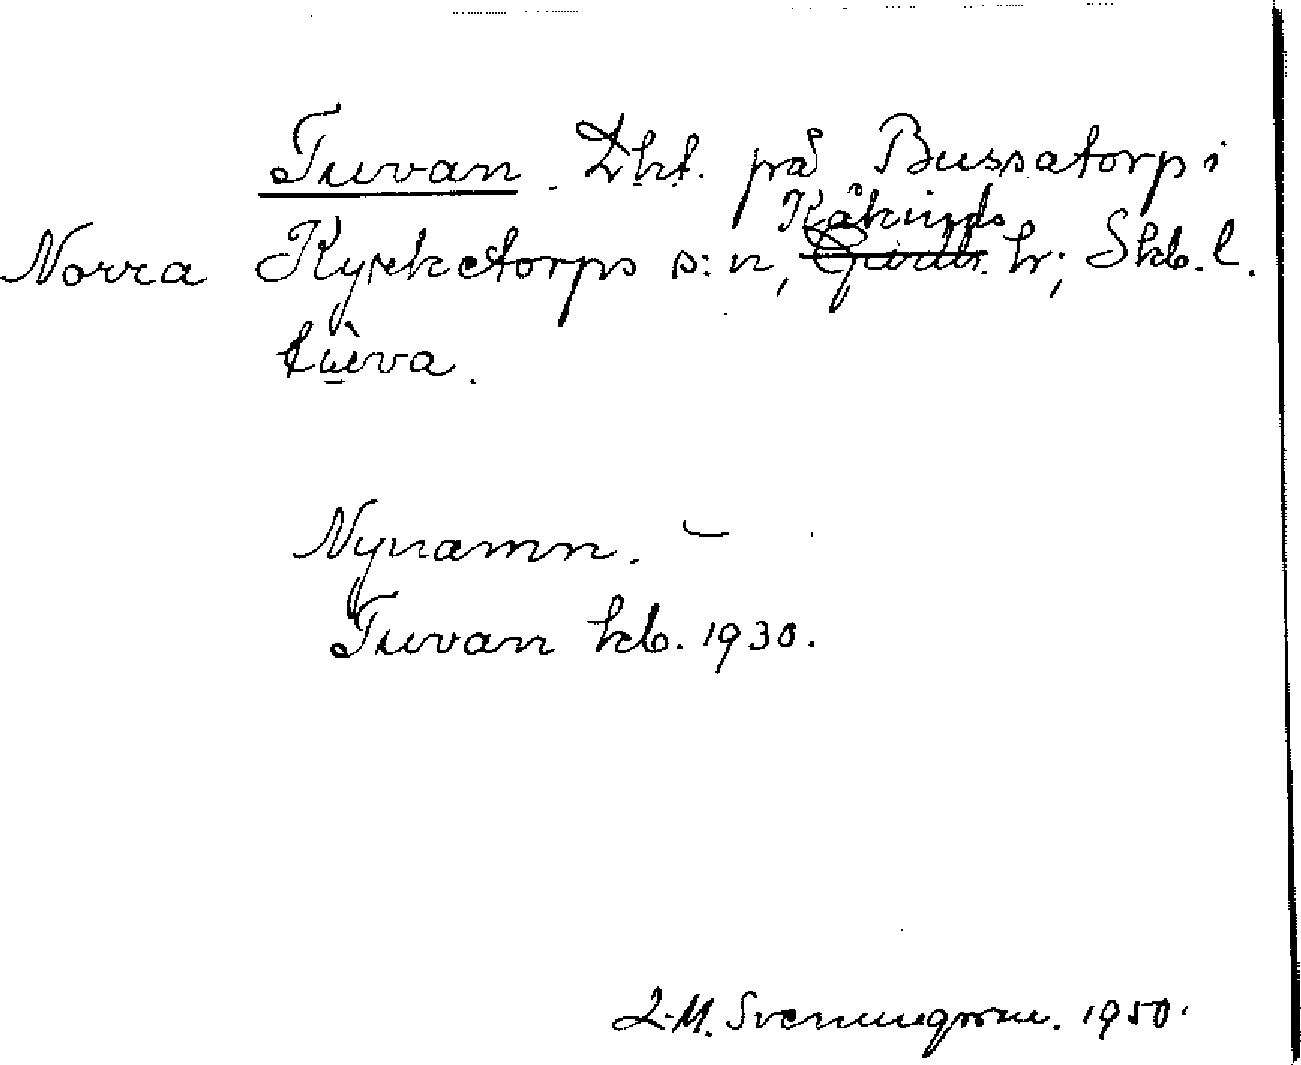 Tuvan. Lht. på Bussatorp i
Kåkinds
Norra Kyrketorps s:n, hr; Skb. l.
tùva.
Nynamn. –
Tuvan kb. 1930.
L-M. Svenungsson. 1950.